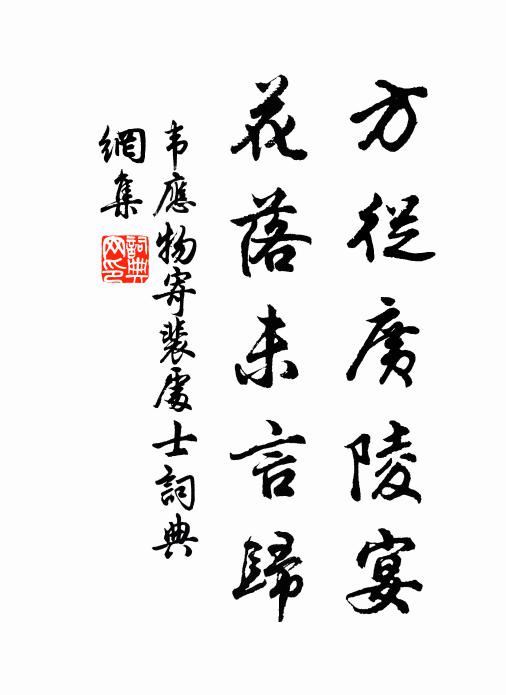 方從廣陵宴
花落未言歸
韦應物寄裴處士詞典
網集
詞典
网印